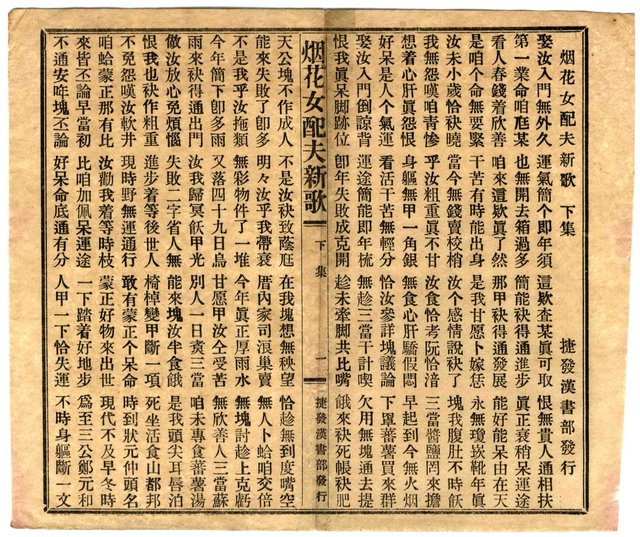 烟花女配夫新歌 下集 捷發漢書部發行
娶汝入門無外久 運氣簡个即年須 這欵查某眞可取 恨無貴人通相扶
第一業命咱尫某 也無開去箱過多 簡能袂得通進步 眞正衰稍呆運途
看人春錢着欣善 咱來這欵眞了然 那甲袂得通發展 能好能呆由在天
是咱个命無要緊 干苦有時能出身 是我甘愿卜嫁恁 永無瓊崁靴年眞
汝未小歲恰袂曉 當今無錢賣梭梢 汝个感情說袂了 塊我腹肚不時飫
我無怨嘆咱青慘 乎汝粗重眞不甘 汝食恰考阮恰涪 三當醬鹽罔來擔
想着心肝眞怨恨 身軀無甲一角銀 無食心肝驕假悶 早起到今無火烟
好呆是人个氣數 看活干苦無輕分 恰汝參詳塊議論 下罩蕃薯買來群
娶汝入門倒諒背 運途簡能即年梳 無趁三當干計喫 欠用無塊通去提
恨我眞呆脚跡位 卽年失敗成克開 趁未牽脚共比嘴 餓來袂死帳袂肥
烟花女配夫新歌 下集 一 捷發漢書部發行
天公塊不作成人 不是汝袂致蔭尫 在我塊想無秧望 恰趁無到度嘴空
能來失敗了卽多 明々汝乎我帶衰 厝內家司浪巢賣 無人卜蛤咱交倍
不是我乎汝拖類 無彩物件了一堆 今年眞正厚雨水 無塊討趁上克虧
今年簡下卽多雨 又落四十九日烏 甘愿甲汝仝受苦 無欣善人三當蘇
雨來袂得通出門 汝我歸冥飫甲光 別人一日亥三當 咱未專食蕃薯湯
做汝放心免煩惱 失敗二字省人無 能來塊汝半食餓 是我頭尖耳唇泊
恨我也袂作粗重 進步着等後世人 椅棹變甲斷一項 死坐活食山都邦
不免怨嘆汝軟井 現時野無運通行 敢有蒙正个呆命 時到狀元仲頭名
咱蛤蒙正那有比 汝勸我着等時枝 蒙正好物來出世 現代不及早冬時
來皆丕論早當初 比咱加佩呆運途 一下踏着好地步 爲至三公鄭元和
不通安咋塊丕論 好呆命底通有分 人甲一下恰失運 不時身軀斷一文